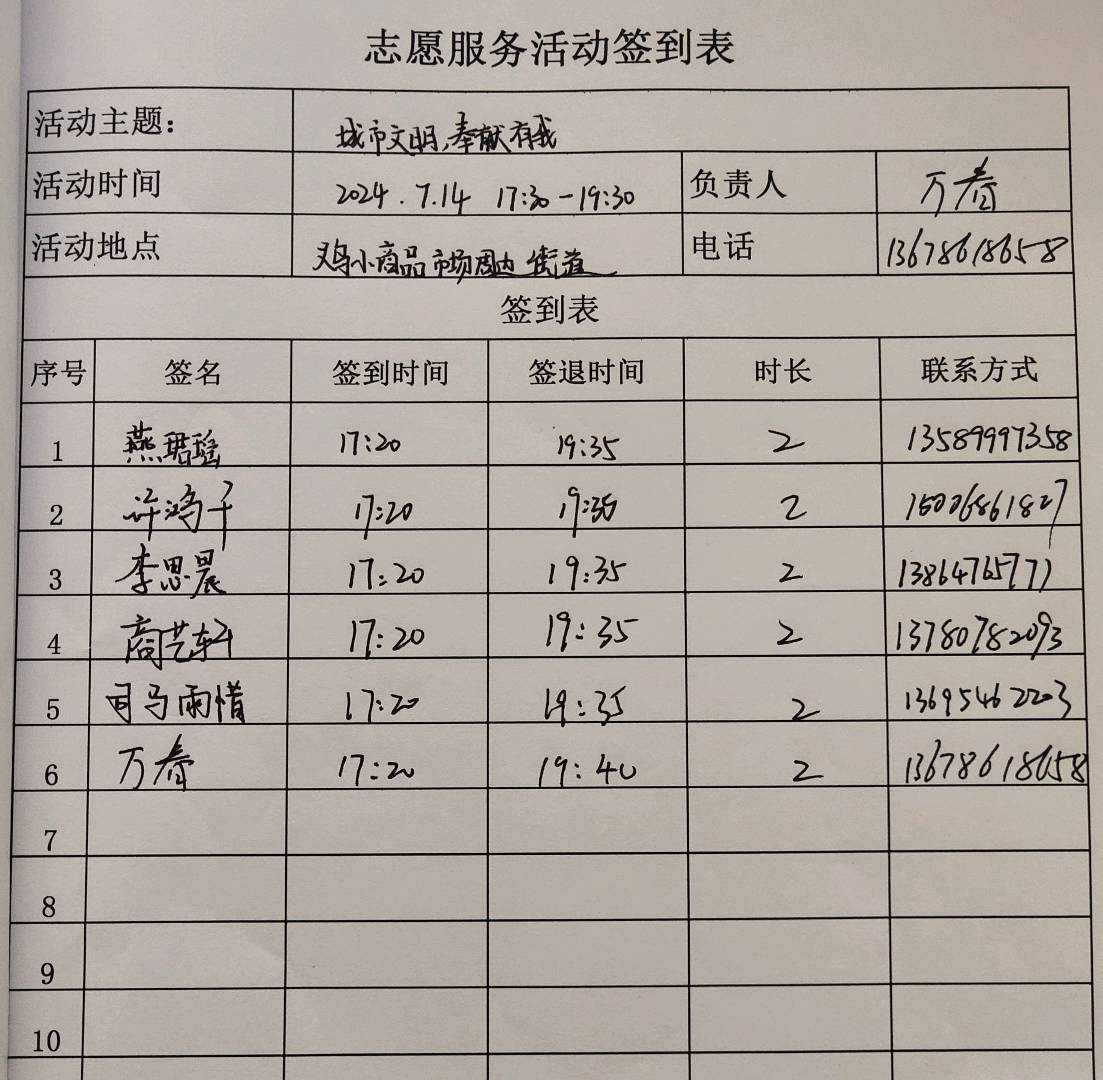 志愿服务活动签到表
活动主题： 城市文明,奉献有我
活动时间 2024.7.14 17:30-19:30 负责人 万春
活动地点 鸡小商品市场周边街道 电话 13678618658
签到表
序号 签名 签到时间 签退时间 时长 联系方式
1 燕珺瑶 17:20 19:35 2 13589997358
2 许鸿千 17:20 19:35 2 15006861827
3 李思晨 17:20 19:35 2 13864765771
4 商艺轩 17:20 19:35 2 13780782093
5 司马雨惜 17:20 19:35 2 13695462203
6 万春 17:20 19:40 2 13678618658
7
8
9
10